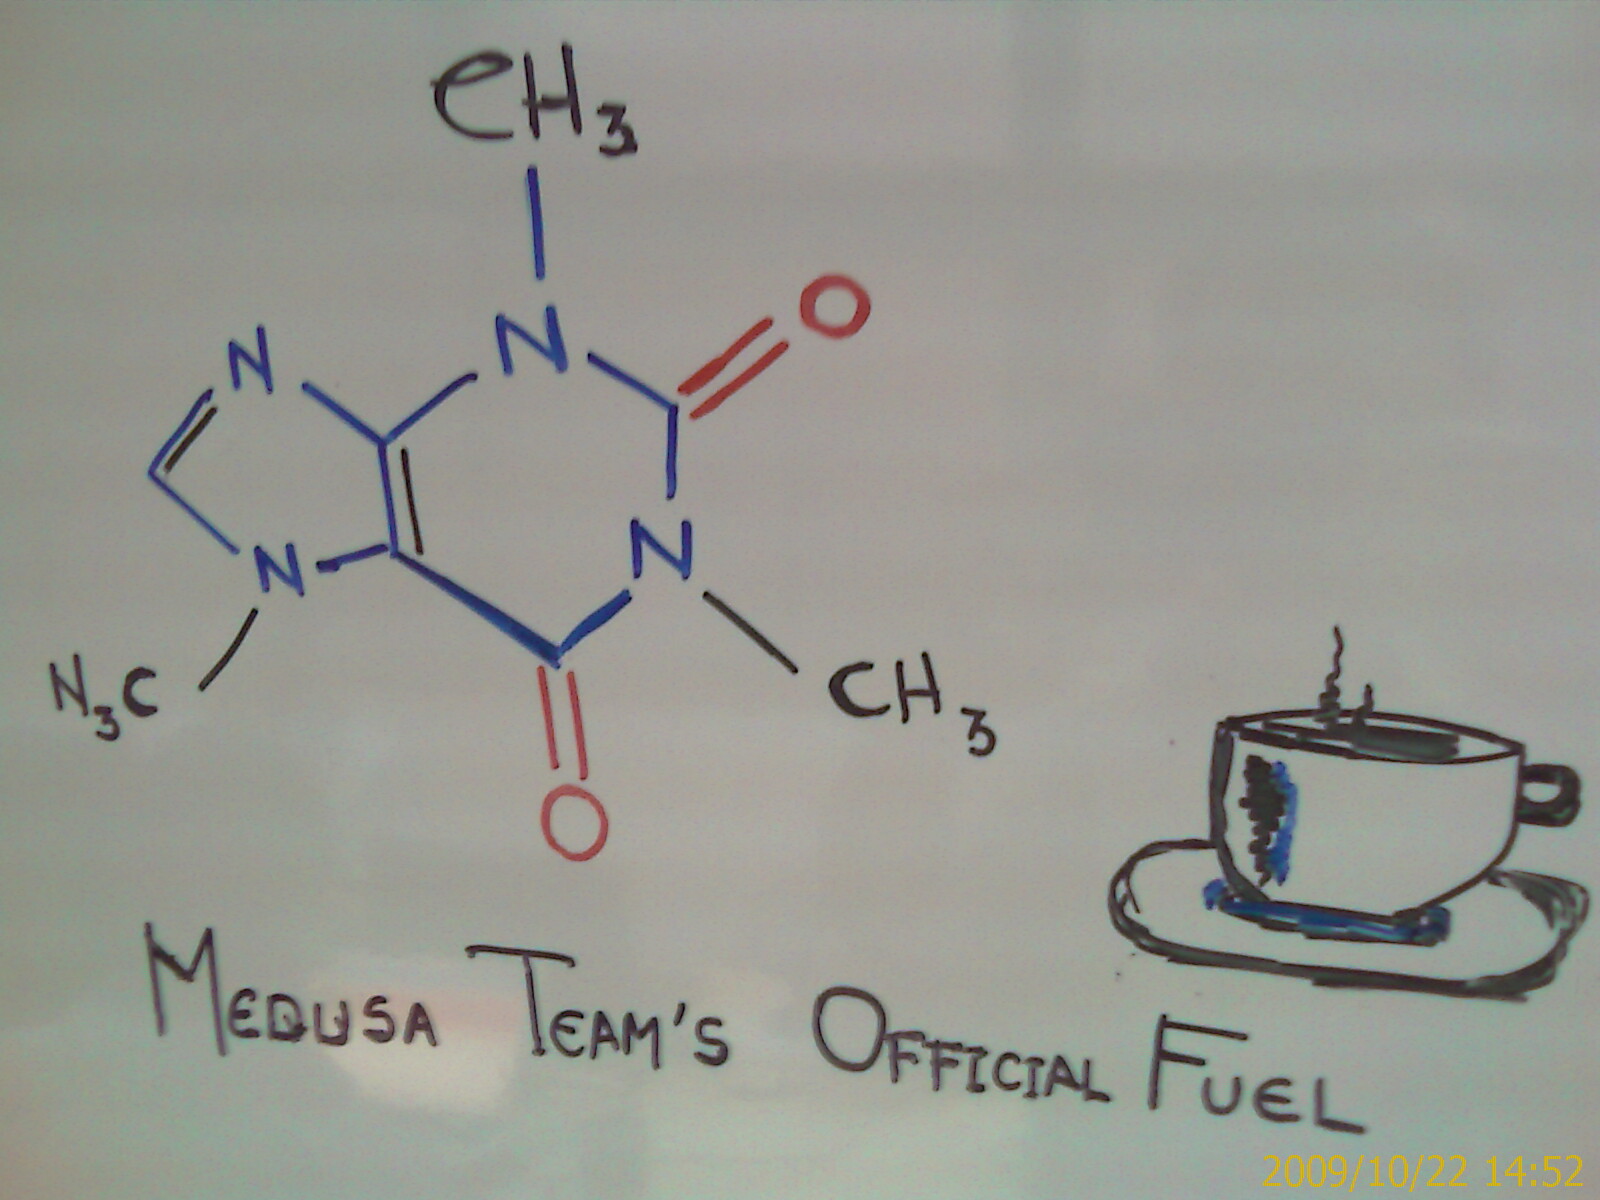 CH3
O
N
N
N
N
N3C
CH3
O
MEDUSA TEAM'S OFFICIAL FUEL
2009/10/22 14:52